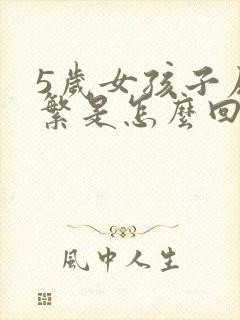 5歲女孩子
繁是怎麼回
風中人生